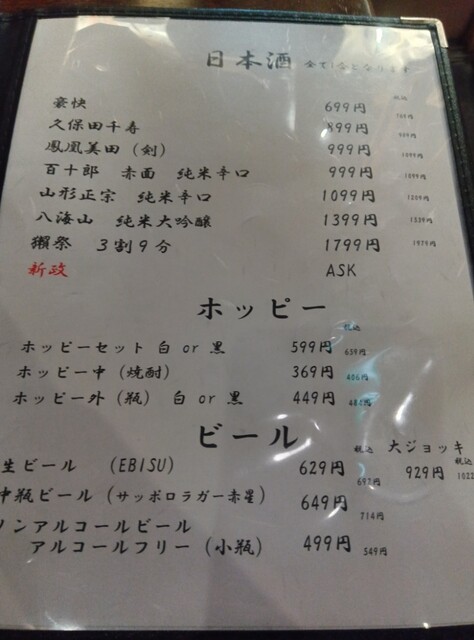 日本酒 全て1合となります
税込
豪快 699円 769円
久保田千寿 899円 989円
鳳凰美田（剣） 999円 1099円
百十郎 赤面 純米辛口 999円 1099円
山形正宗 純米辛口 1099円 1209円
八海山 純米大吟醸 1399円 1539円
獺祭 3割9分 1799円 1979円
新政 ASK
ホッピー
税込
ホッピーセット 白 or 黒 599円 659円
ホッピー中（焼酎） 369円 406円
ホッピー外（瓶） 白 or 黒 449円
ビール
税込 大ジョッキ
税込
生ビール （EBISU） 629円 929円 1022
中瓶ビール（サッポロラガー赤星） 649円 714円
ノンアルコールビール
アルコールフリー（小瓶） 499円 549円